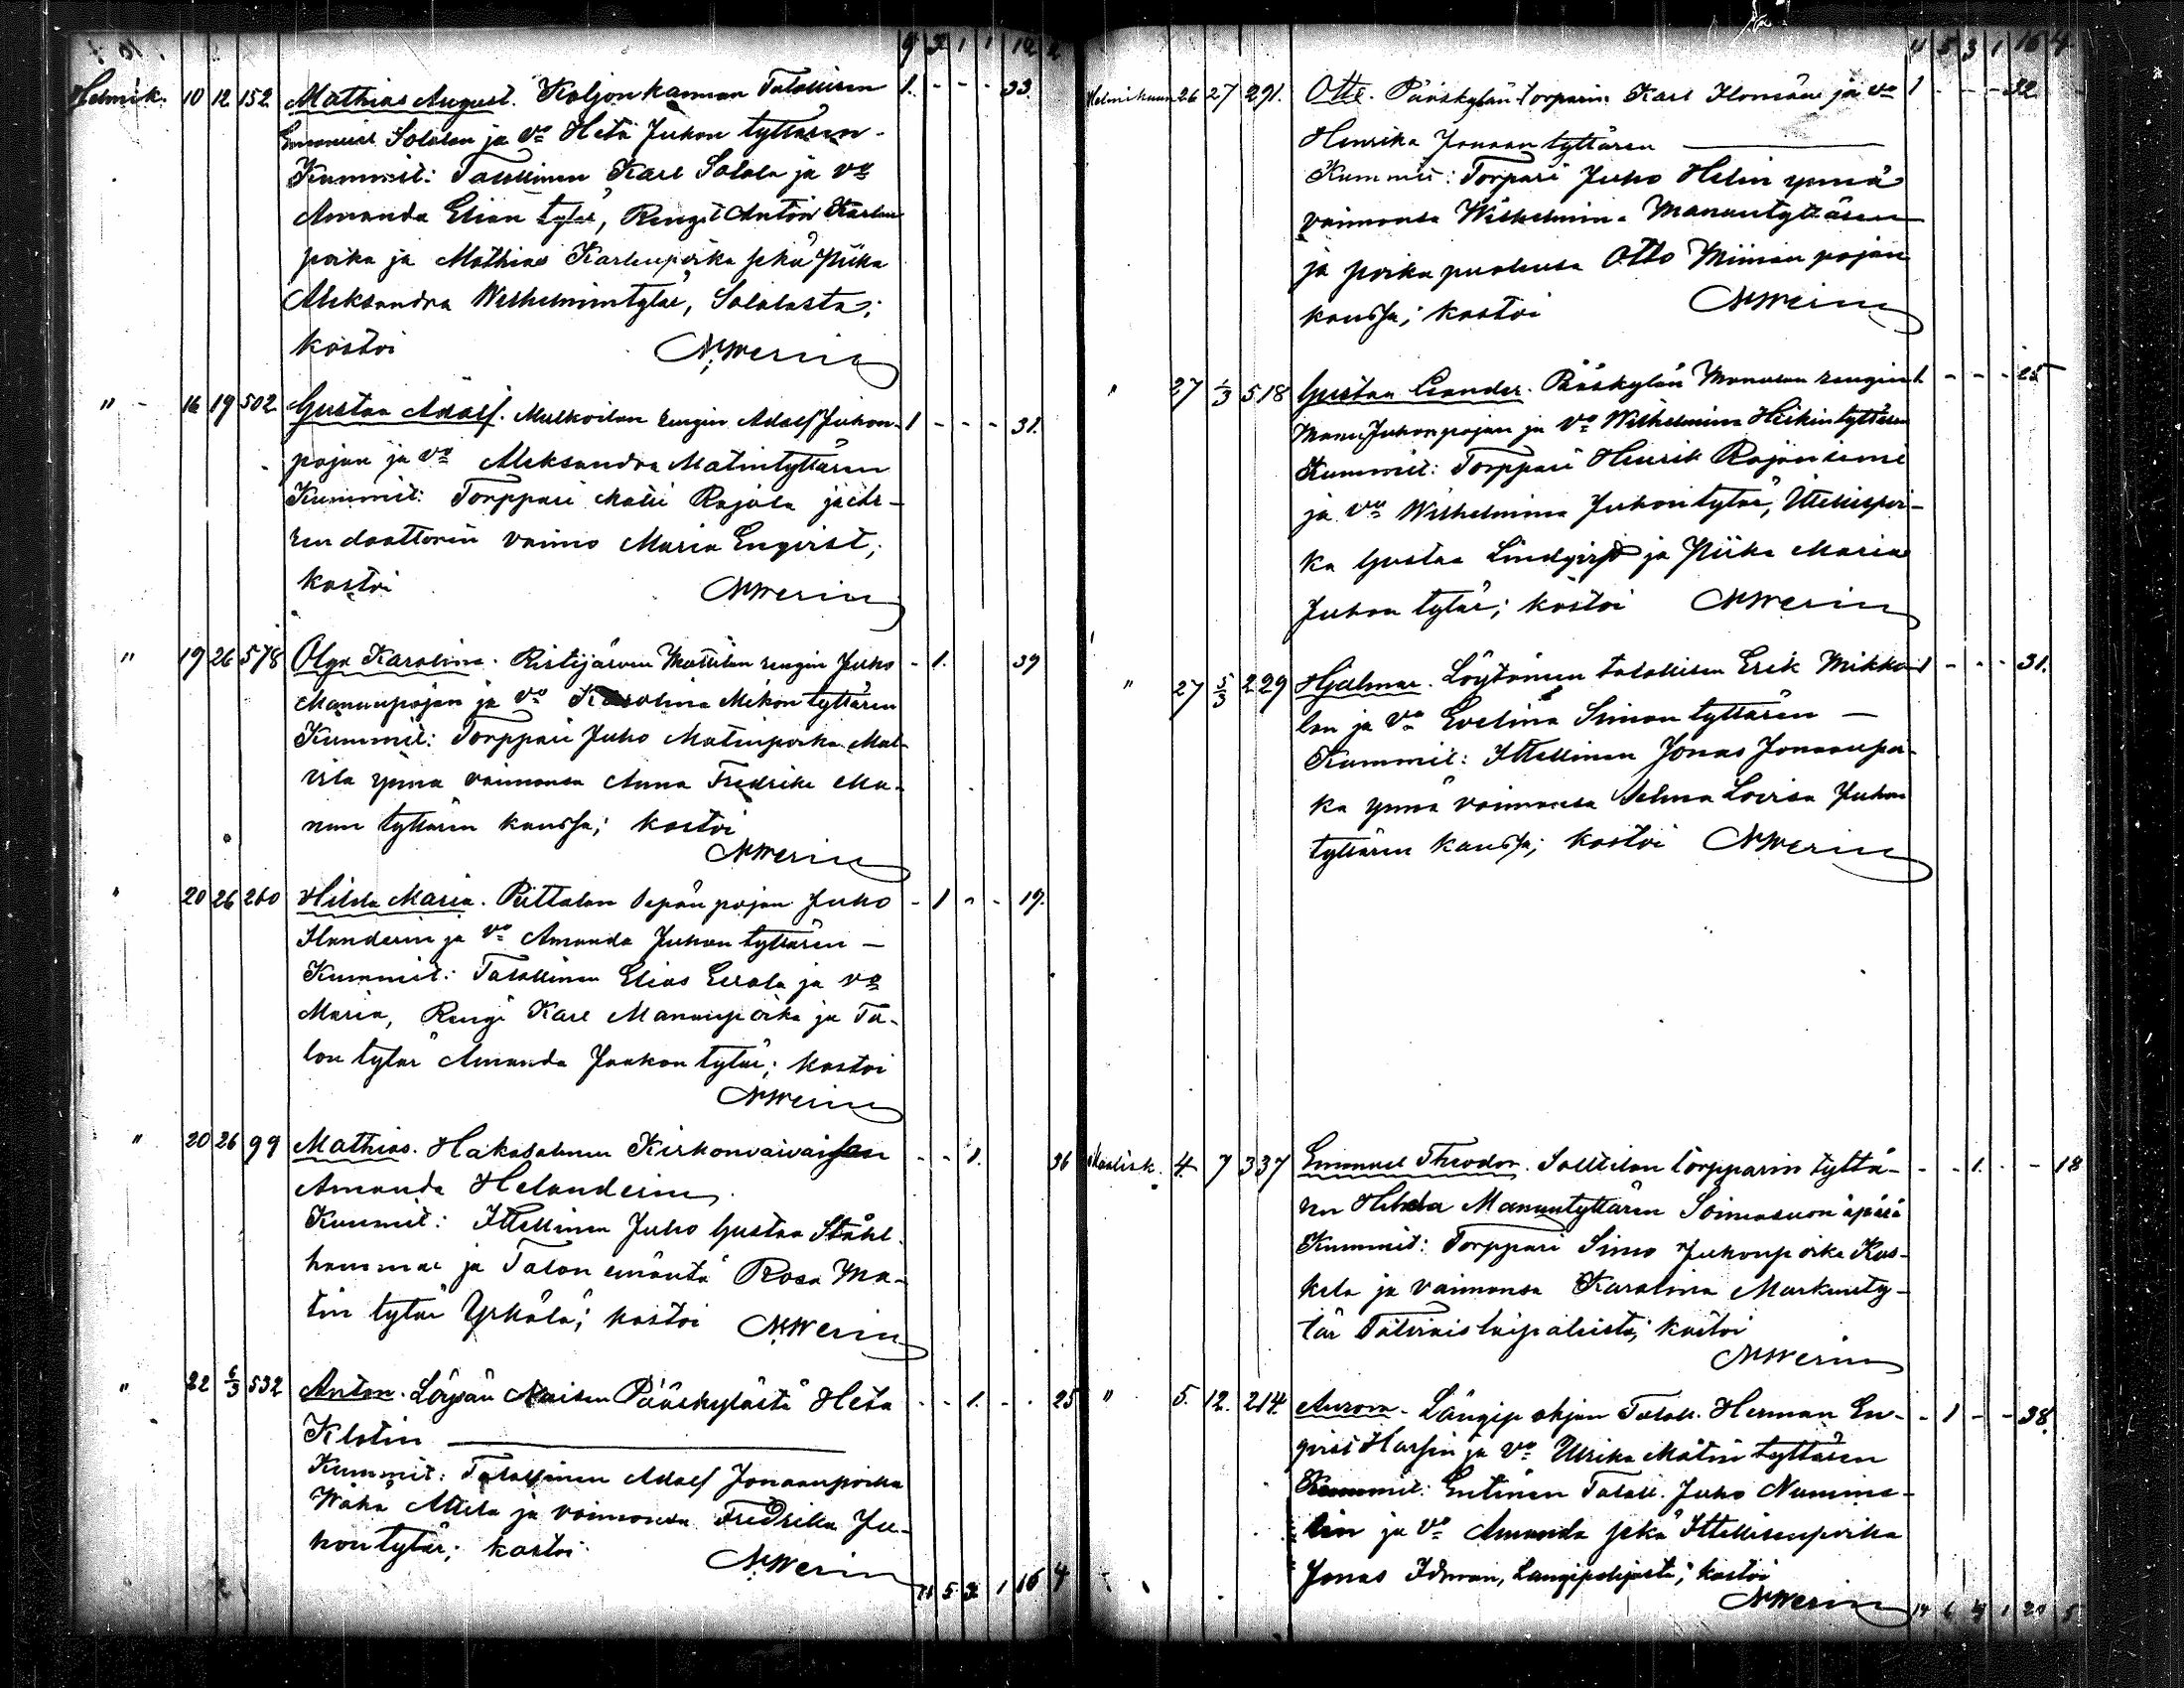 9 3 1 1 12 2
Helmik. 10 12 152 Mathias August. Koljonkannan Talollisen 1. - - - 33.
Emanuel Solalan ja vo Heta Juhon tyttären -
Kummit: Talollinen Karl Solala ja vo
Amanda Elian tytär, Rengit Anton Karlen
poika ja Mathias Karlenpoika sekä Piika
Aleksandra Wilhelmintytär, Solalasta;
kastoi NWerin
" 16 19 502 Gustaa Adolf. Mulkoilan rengin Adolf Juhon- 1 - - - 31.
pojan ja vo Aleksandra Matintyttären
Kummit: Torppari Matti Rajala ja Ar-
rendaattorin vaimo Maria Enqvist;
kastoi NWerin
" 19 26 578 Olga Karolina. Ristijärven Mattilan rengin Juho - 1. 39
Manuunpojan ja vo Karolina Mikon tyttären
Kummit: Torppari Juho Matinpoika
ynnä vaimonsa Anna Fredrika Ma-
nun tyttären kanssa; kastoi
NWerin
" 20 26 260 Hilda Maria. Pittalan Sepän pojan Juho - 1 - - 19.
ja vo Amanda Juhon tyttären -
Kummit: Talollinen Elias Eerola ja vo
Maria, Rengi Karl Manunpoika ja Ta-
lon tytär Amanda Jaakon tytär; kastoi
NWerin
" 20 26 99 Mathias. Hakosalmen Kirkonvaivaisen - - 1. 36
Amanda Helanderin
Kummit: Ittellinen Juho Gustaa Stålhammar
ja Talon emäntä Rosa Ma-
tin tytär Yrkölä; kastoi NWerin
" 22 6/3 532 Anton. Löysän Naisen Pääskylästä Heta - - 1. - - 25
Klotin
Kummit: Talollinen Adolf Jonaanpoika
Wähä Attila ja vaimonsa Fredrika Ju-
hontytär; kastoi NWerin
11 5 3 1 16 4
11 5 3 1 16 4
Helmikuun 26 27 291. Otto. Pääskylän torparin Karl Ilomäen ja vo 1 - - - 32
Henrika Jonaan tyttären
Kummit: Torpari Juho Helin ynnä
vaimonsa Wilhelmina Manuntyttären
ja poika puolensa Otto Miinan pojan
kanssa; kastoi NWerin
" 27 1/3 518 Gustaa Leander. Pääskylän Manulan rengin 1. - - - 25
Manu Juhonpojan ja vo Wilhelmina Heikintyttären
Kummit: Torppari Henrik Rajaniemi
ja vo Wilhelmina Juhontytär, Ittellispoi-
ka Gustaa Lindqvist ja Piika Maria
Juhon tytär; kastoi NWerin
" 27 5/3 229 Hjalmar. Löytänen talollisen Erik Mikko- 1 - - - 31.
lan ja vo Evelina Simon tyttären -
Kummit: Ittellinen Jonas Jonaanpoi-
ka ynnä vaimonsa Selma Lovisa Juhon
tyttären kanssa; kastoi NWerin
Maalisk. 4. 7 337 Emanuel Theodor. Solttilan torpparin tyttä- - - 1. - - 18
ren Hilda Manuntyttären Soimasuon äpärä
Kummit: Torppari Simo Juhonpoika Kos-
kela ja vaimonsa Karolina Markunty-
tär kastoi
NWerin
" 5. 12. 214. Aurora. Längipohjan Taloll. Herman En- - 1 - - 38.
qvist Harsin ja vo Ulrika Matin tyttären
Kummit: Entinen Taloll. Juho Numme-
lin ja vo Amanda sekä Ittellisenpoika
Jonas Idman, Längipohjasta; kastoi
NWerin
14 6 4 1 20 5